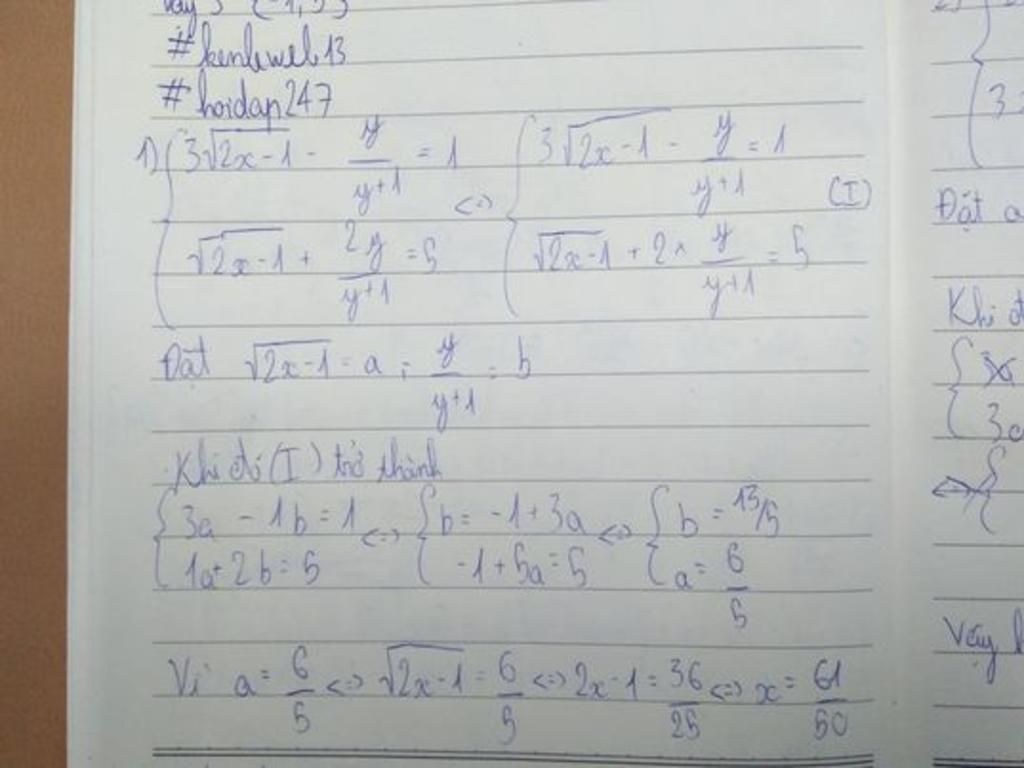 Vậy S {-1, 5}
#kenlewel13
#hoidap247
1) {3√2x-1 - y/y+1 = 1 <=> {3√2x-1 - y/y+1 = 1
{√2x-1 + 2y/y+1 = 5 {√2x-1 + 2 × y/y+1 = 5 (I)
Đặt √2x-1 = a ; y/y+1 = b
Khi đó (I) trở thành
{3a - 1b = 1 <=> {b = -1+3a <=> {b = 13/5
{1a+2b = 5 {-1+5a = 5 {a = 6/5
Vì a = 6/5 <=> √2x-1 = 6/5 <=> 2x-1 = 36/25 <=> x = 61/50
Đặt a
Khi đ
Vậy